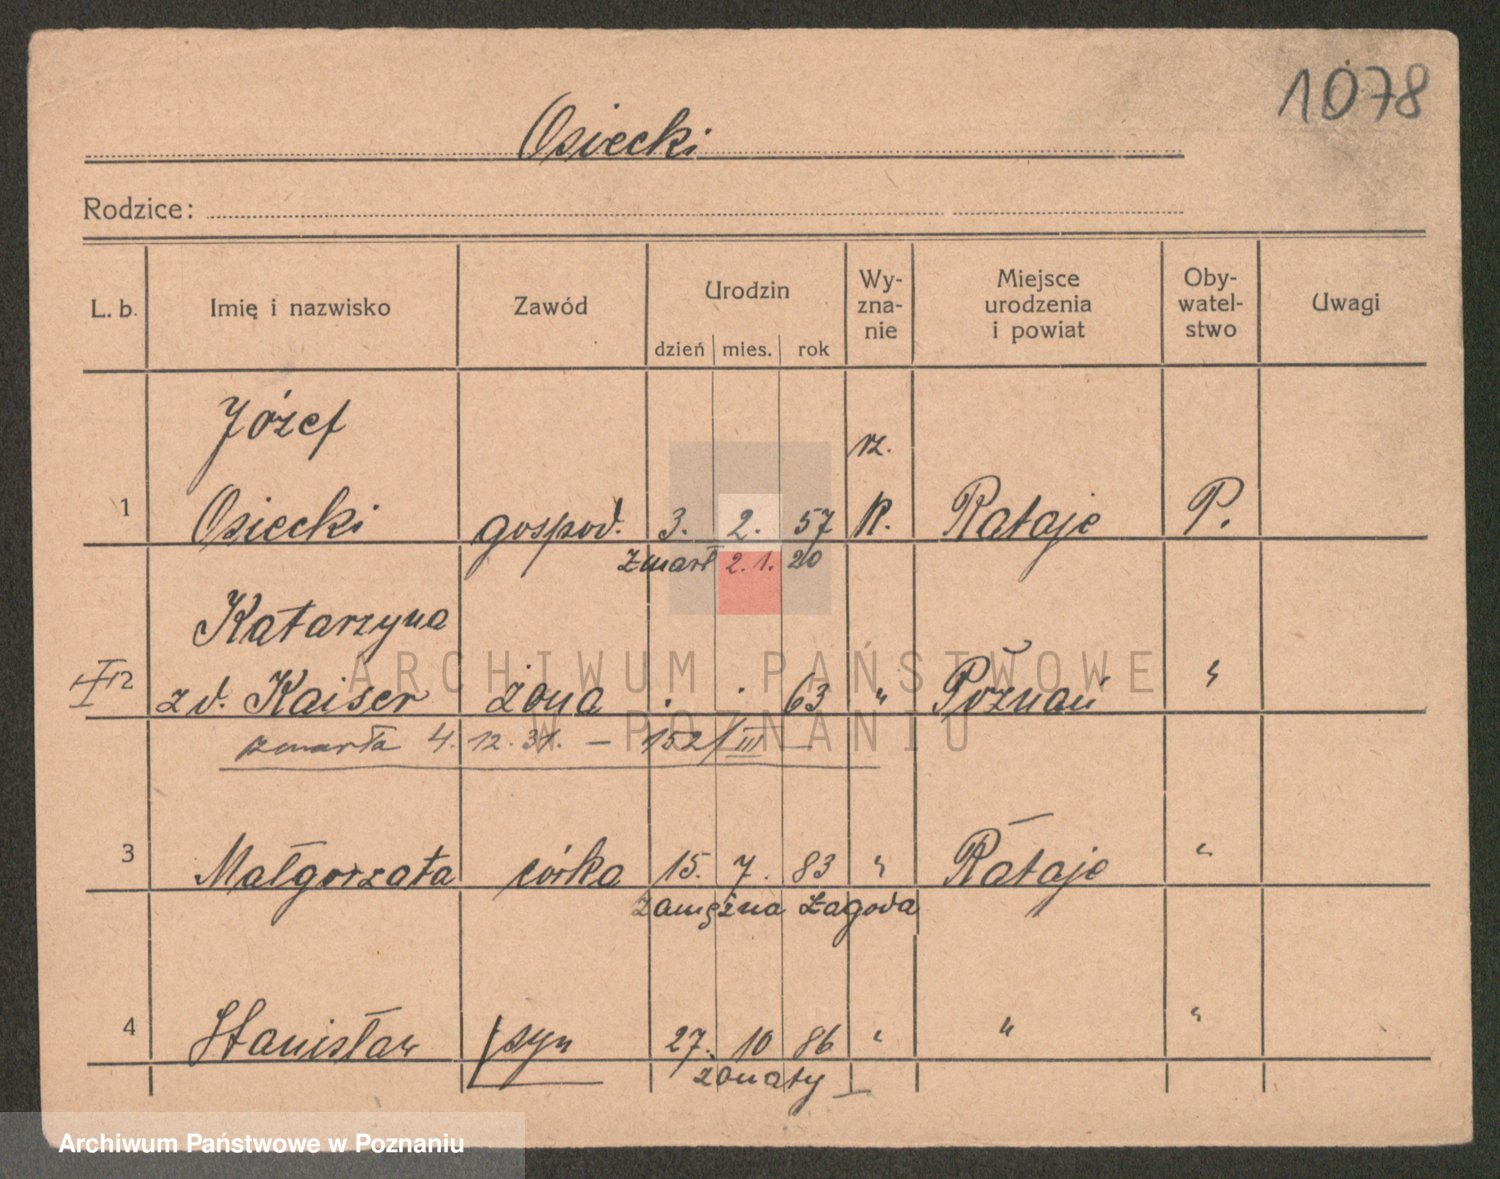 1078
Osiecki
Rodzice:
L. b. Imię i nazwisko Zawód Urodzin Wy-zna-nie Miejsce urodzenia i powiat Oby-watel-stwo Uwagi
dzień mies. rok
Józef rz.
1 Osiecki gospod. 3. 2. 57 k. Rataje P.
zmarł 2. 1. 20
Katarzyna
2 z d. Kaiser żona . . 63 " Poznań "
zmarła 4. 12. 31. – 152/III
3 Małgorzata córka 15. 7. 83 " Rataje "
zamężna Łagoda
4 Stanisław syn 27. 10 86 " " "
żonaty
ARCHIWUM PAŃSTWOWE
W POZNANIU
Archiwum Państwowe w Poznaniu